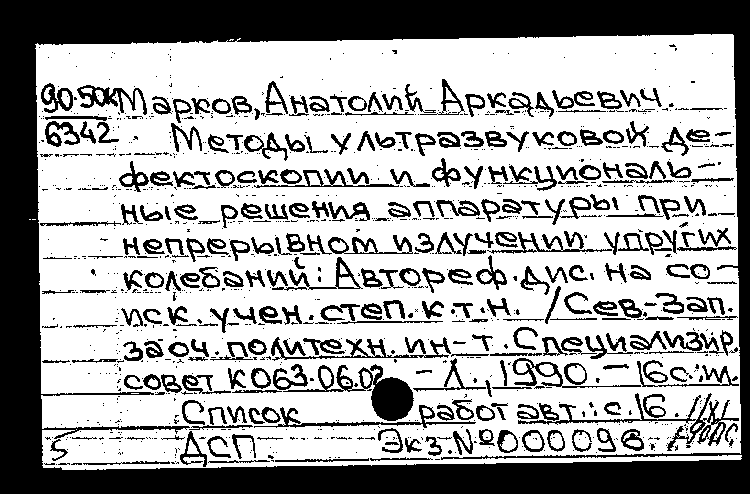 90-50К Марков, Анатолий Аркадьевич.
6342. Методы ультразвуковой де-
фектоскопии и функциональ-
ные решения аппаратуры при
непрерывном излучении упругих
колебаний: Автореф. дис. на со-
иск. учен. степ. к.т.н. /Сев.-Зап.
заоч. политехн. ин-т. Специализир.
совет К 063.06.02 - Л., 1990. - 16 с.: ил.
Список работ авт.: с. 16.
5 ДСП. Экз. № 000098.